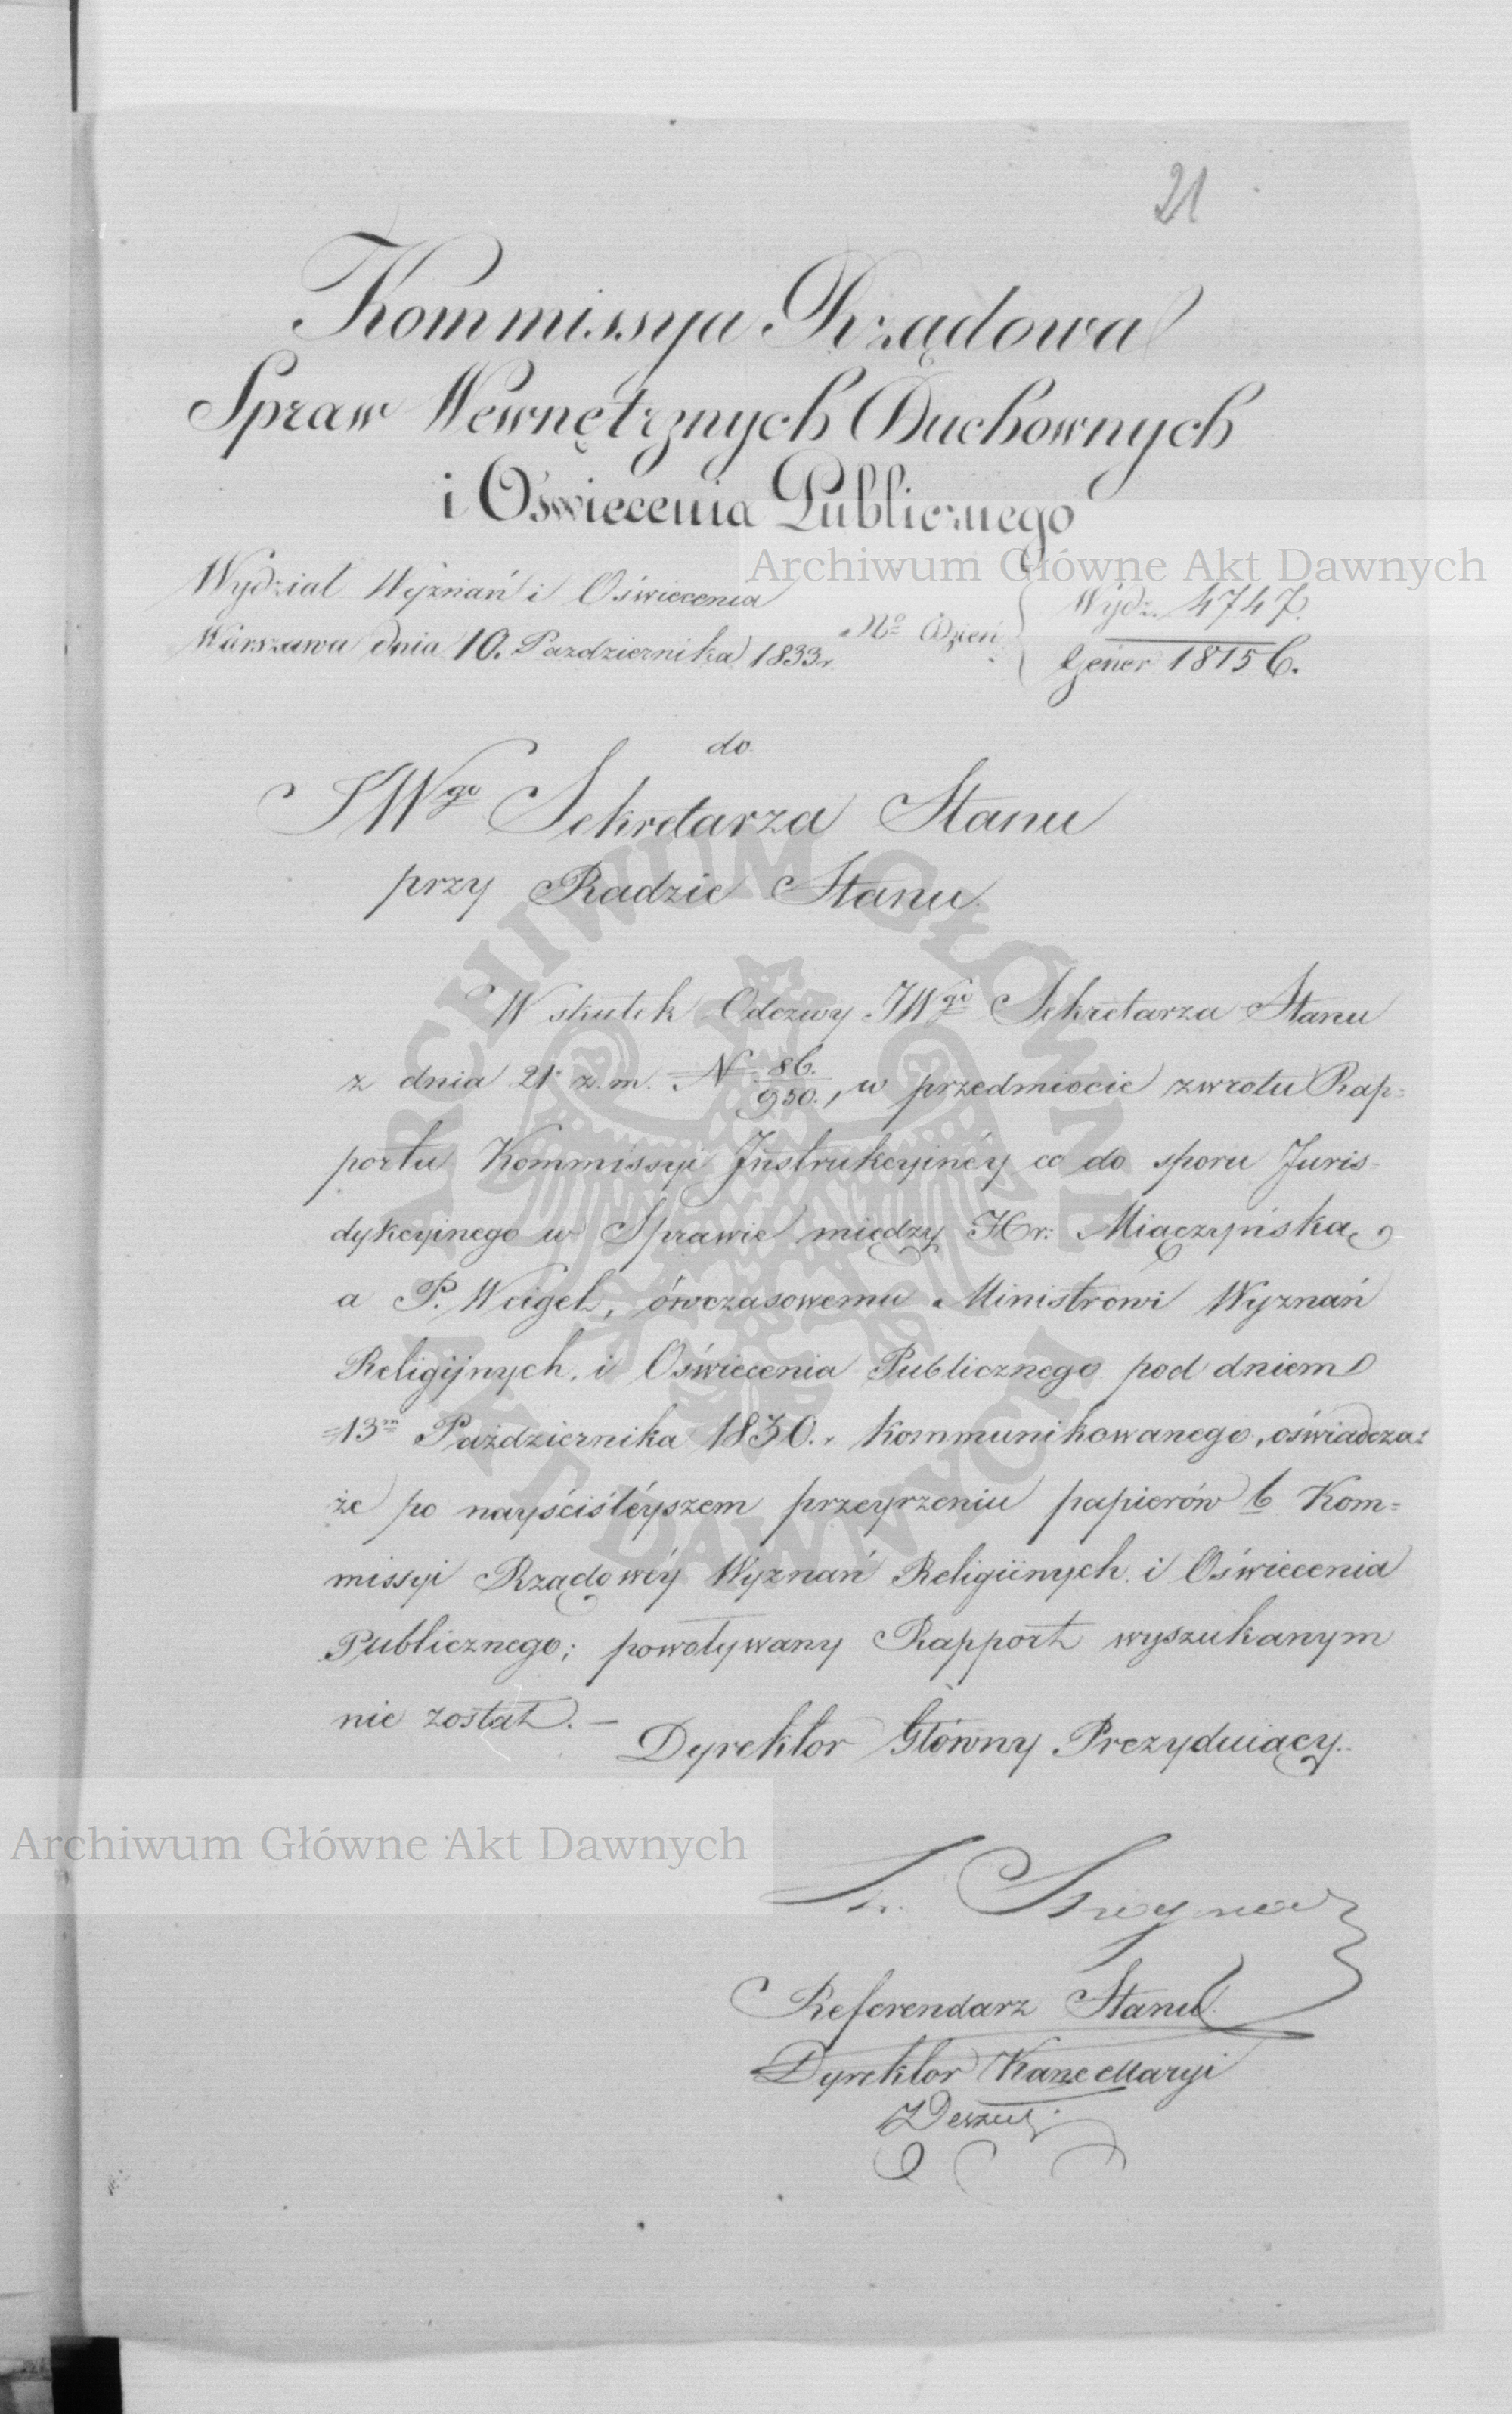 21
Kommissya Rządowa
Spraw Wewnętrznych Duchownych
i Oświecenia Publicznego
Archiwum Główne Akt Dawnych
Wydział Wyznań i Oświecenia
Warszawa dnia 10. Pazdziernika 1833r.
No Dzień { Wydz. 4747.
Gener 18156.
do
JWgo Sekretarza Stanu
przy Radzie Stanu
W skutek Odezwy JWgo Sekretarza Stanu
z dnia 21 z. m. N 86./950., w przedmiocie zwrotu Rap=
portu Kommissyi Instrukcyinéy co do sporu Juris=
dykcyinego w Sprawie między Hr: Miączyńską,
a P. Weigel, ówczasowemu Ministrowi Wyznań
Religijnych, i Oświecenia Publicznego pod dniem
13m Października 1830.r. kommunikowanego, oświadcza:
że po nayściśléyszem przeyrzeniu papierów b Kom=
missyi Rządowéy Wyznań Religiinych i Oświecenia
Publicznego; powoływany Rapport wyszukanym
nie został. —
Dyrektor Główny Prezyduiący.
Archiwum Główne Akt Dawnych
Referendarz Stanu
Dyrektor Kancellaryi
ARCHIWUM GŁÓWNE AKT DAWNYCH